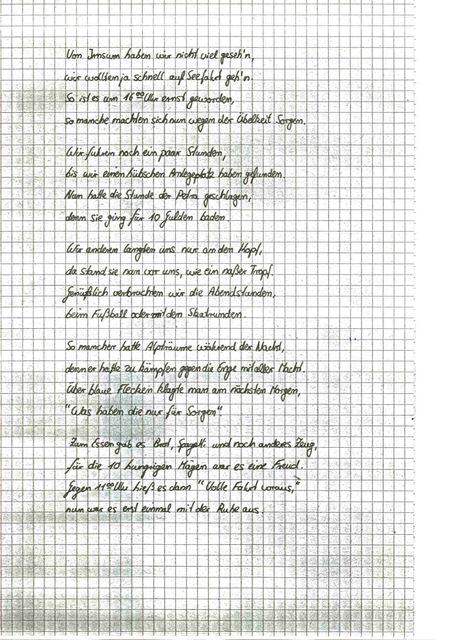 Von Imsum haben wir nicht viel geseh'n,
wir wollten ja schnell auf Seefahrt geh'n.
So ist es um 16⁰⁰ Uhr ernst geworden,
so manche machten sich nun wegen der Übelkeit Sorgen.
Wir fuhren noch ein paar Stunden,
bis wir einen hübschen Anlegeplatz haben gefunden.
Nun hatte die Stunde der Petra geschlagen,
denn sie ging für 10 Gulden baden.
Wir anderen langten uns nur an den Kopf,
da stand sie nun vor uns, wie ein naßer Tropf.
Genüßlich verbrachten wir die Abendstunden,
beim Fußball oder mit den Skatrunden.
So mancher hatte Alpträume während der Nacht,
denn er hatte zu kämpfen gegen die Enge mit aller Macht.
Über blaue Flecken klagte man am nächsten Morgen,
"Was haben die nur für Sorgen"
Zum Essen gab es Brot, Spagetti und noch anderes Zeug,
für die 10 hungrigen Mägen war es eine Freud.
Gegen 11⁰⁰ Uhr hieß es dann "Volle Fahrt voraus,"
nun war es erst einmal mit der Ruhe aus.